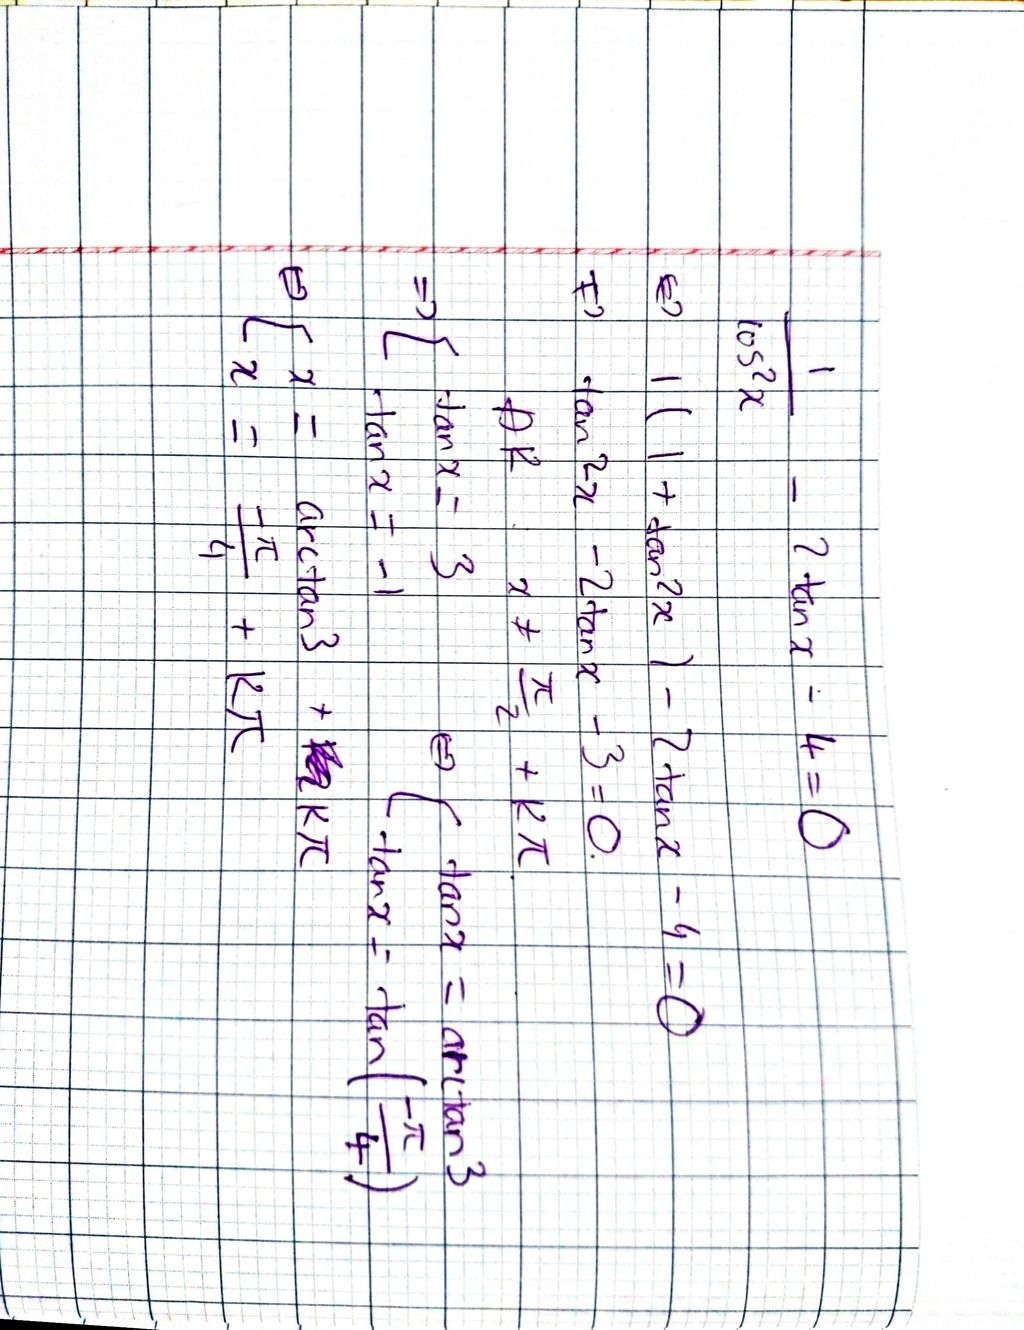 1/cos²x - 2tanx - 4 = 0
⇔ 1(1 + tan²x) - 2tanx - 4 = 0
⇔ tan²x - 2tanx - 3 = 0.
ĐK x ≠ π/2 + kπ
⇒ { tanx = 3 ⇔ { tanx = arctan3
tanx = -1 tanx = tan(-π/4)
⇔ { x = arctan3 + kπ
x = -π/4 + kπ